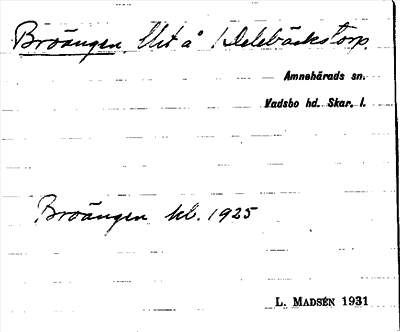 Broängen. Urt å Delebäckstorp.
Amnehärads sn.
Vadsbo hd. Skar. l.
Broängen kl. 1925
L. MADSÉN 1931